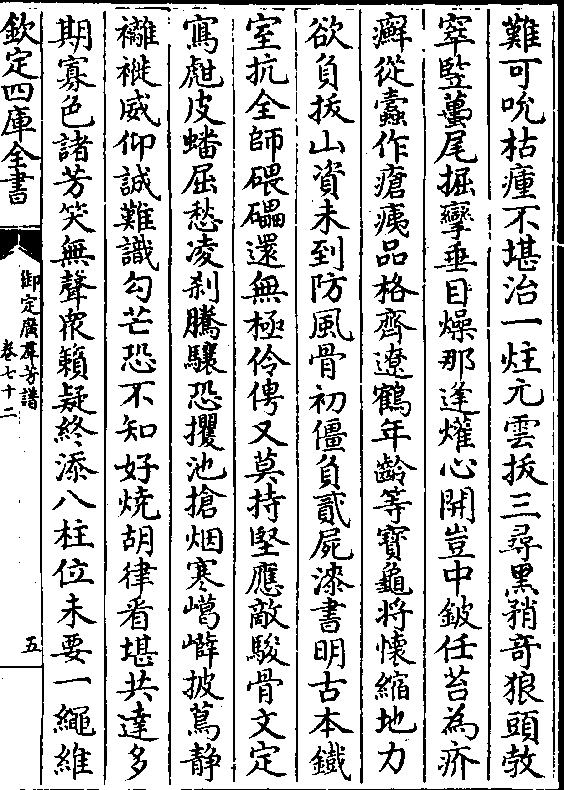 難可吮枯瘇不堪治一炷元雲拔三尋黒矟竒狼頭敎
窣竪蠆尾掘孿垂目燥那逢爟心開豈中鈹任苔為疥
癬從蠧作瘡痍品格齊遼鶴年齡等寳龜将懐縮地力
欲負拔山資未到防風骨初僵負貳屍漆書明古本鐡
室抗全師碨礧還無極伶俜又莫持堅應敵駿骨文定
寫彪皮蟠屈愁凌刹騰驤恐攫池搶烟寒嶱嶭披蔦静
襹褷威仰誠難識勾芒恐不知好燒胡律看堪共達多
期寡色諸芳笑無聲衆籟疑終添八柱位未要一繩維
欽定四庫全書
御定廣羣芳譜
卷七十二
五